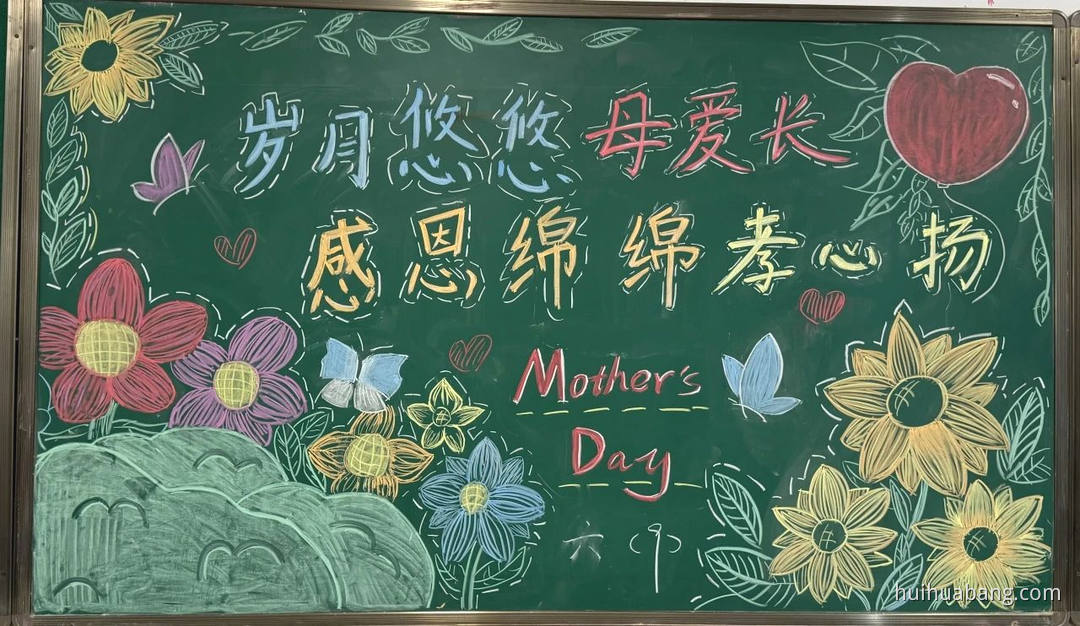 岁月悠悠母爱长
感恩绵绵孝心扬
Mother's
Day
六(中)
huihuabang.com